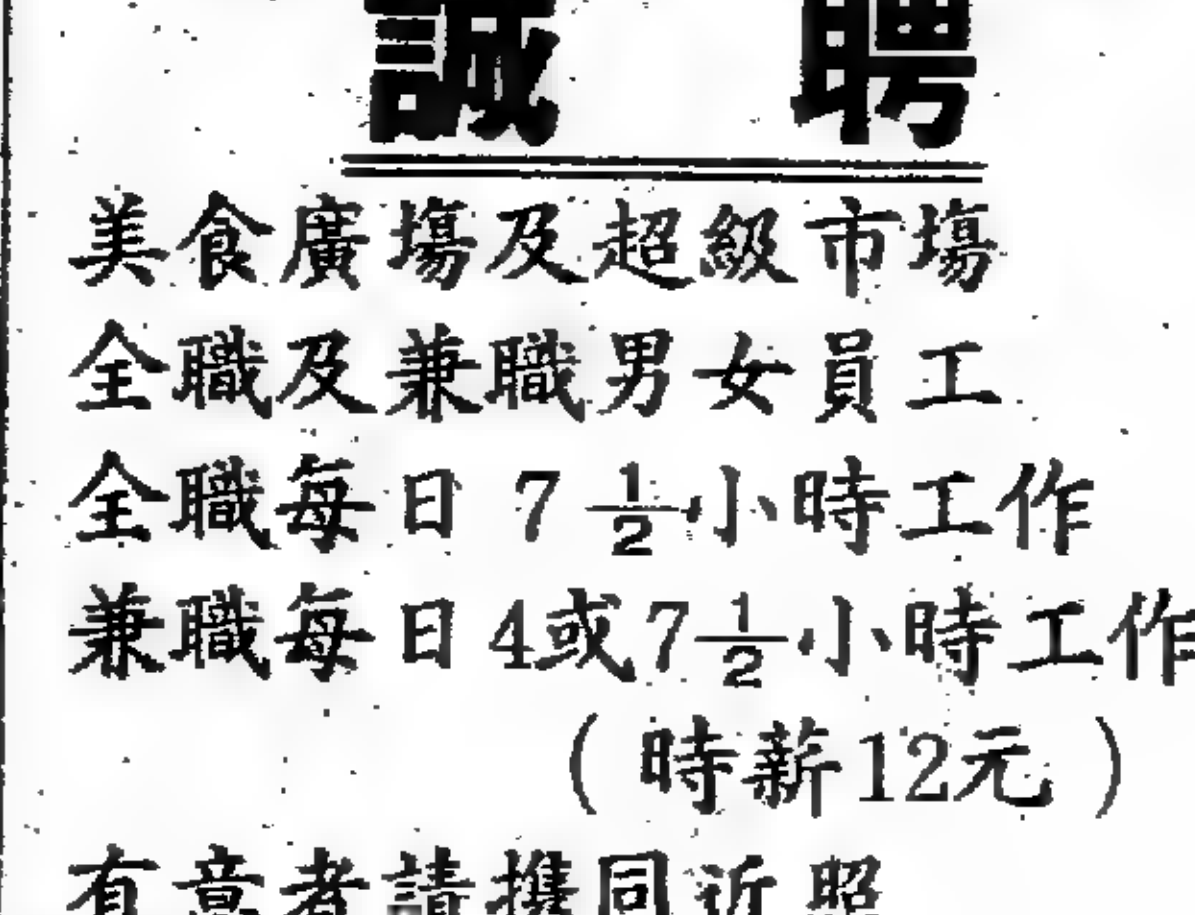 誠聘
美食廣塲及超級市塲
全職及兼職男女員工
全職每日 7 1/2 小時工作
兼職每日4或7 1/2 小時工作
(時薪12元)
有意者請携同近照